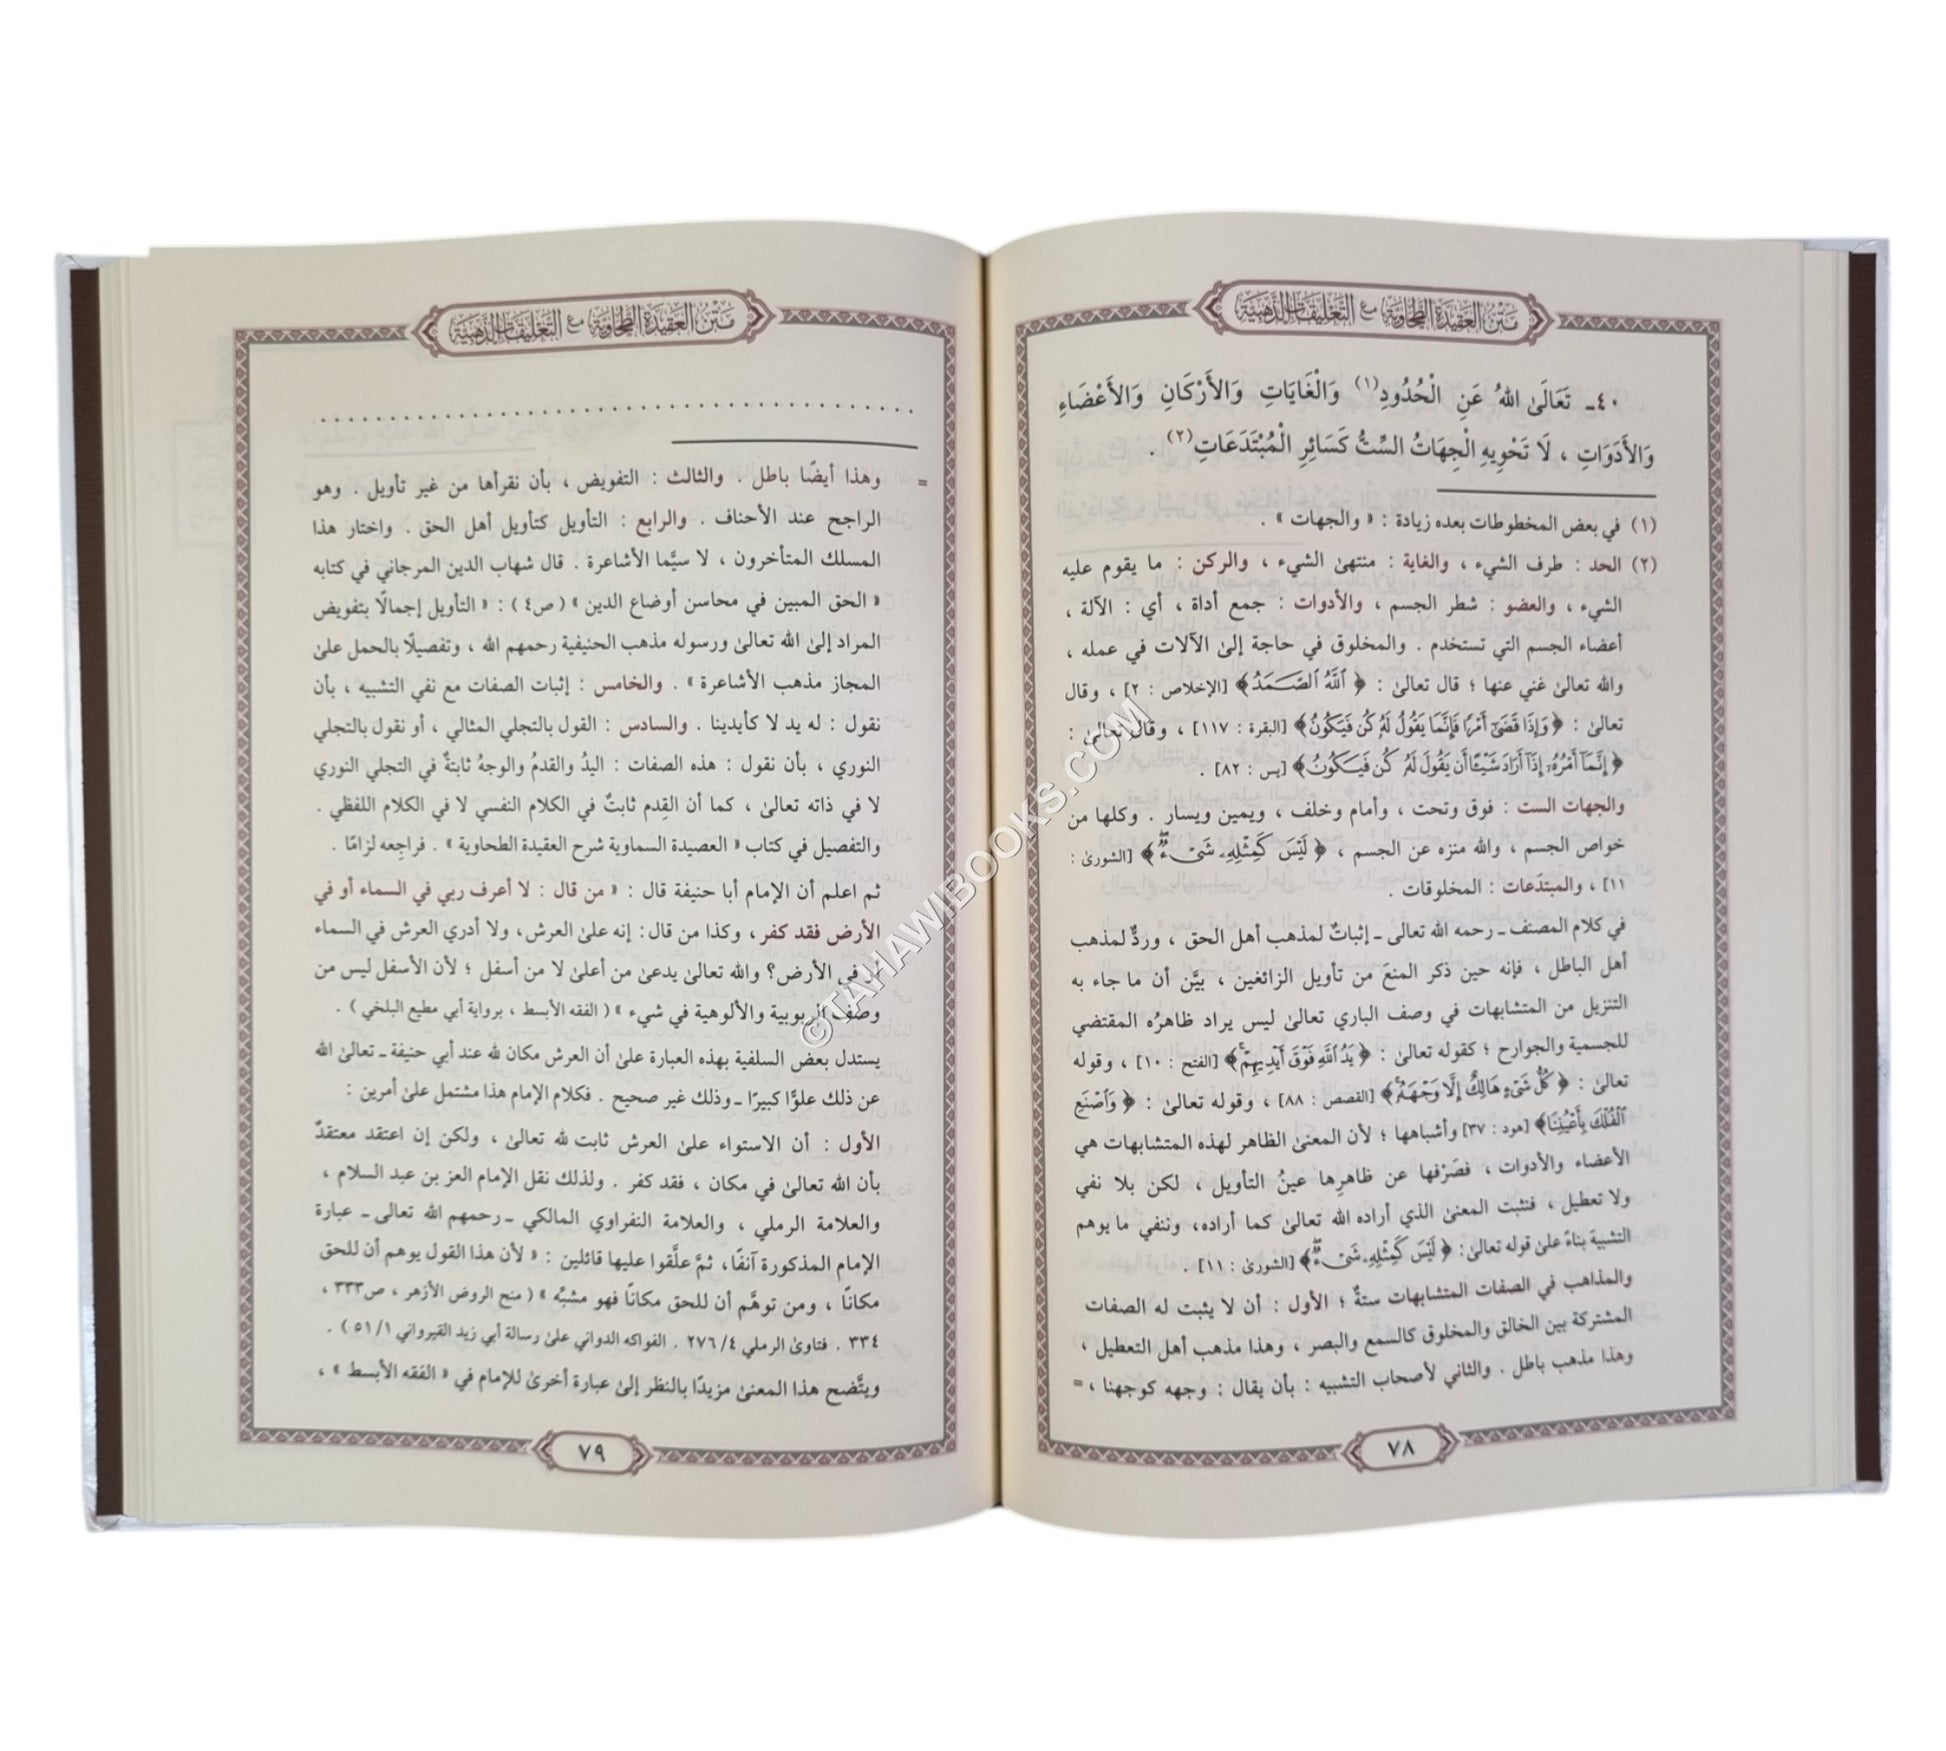 متن العقيدة الطحاوية مع التعليقات الذهبية
٤٠ـ تَعَالَى اللهُ عَنِ الْحُدُودِ(١) وَالْغَايَاتِ وَالأَرْكَانِ وَالأَعْضَاءِ
وَالأَدَوَاتِ ، لَا تَحْوِيهِ الْجِهَاتُ السِّتُّ كَسَائِرِ الْمُبْتَدَعَاتِ(٢) .
(١) في بعض المخطوطات بعده زيادة : « والجهات » .
(٢) الحد : طرف الشيء ، والغاية : منتهىٰ الشيء ، والركن : ما يقوم عليه
الشيء ، والعضو : شطر الجسم ، والأدوات : جمع أداة ، أي : الآلة ،
أعضاء الجسم التي تستخدم . والمخلوق في حاجة إلىٰ الآلات في عمله ،
والله تعالىٰ غني عنها ؛ قال تعالىٰ : ﴿ ٱللَّهُ ٱلصَّمَدُ ﴾ [الإخلاص : ٢] ، وقال
تعالىٰ : ﴿ وَإِذَا قَضَىٰٓ أَمْرًا فَإِنَّمَا يَقُولُ لَهُۥ كُن فَيَكُونُ ﴾ [البقرة : ١١٧] ، وقال تعالىٰ :
﴿ إِنَّمَآ أَمْرُهُۥٓ إِذَآ أَرَادَ شَيْـًٔا أَن يَقُولَ لَهُۥ كُن فَيَكُونُ ﴾ [يس : ٨٢] .
والجهات الست : فوق وتحت ، وأمام وخلف ، ويمين ويسار . وكلها من
خواص الجسم ، والله منزه عن الجسم ، ﴿ لَيْسَ كَمِثْلِهِۦ شَىْءٌ ﴾ [الشورىٰ :
١١] ، والمبتدَعات : المخلوقات .
في كلام المصنف ـ رحمه الله تعالى ـ إثباتٌ لمذهب أهل الحق ، وردٌّ لمذهب
أهل الباطل ، فإنه حين ذكر المنعَ من تأويل الزائغين ، بيَّن أن ما جاء به
التنزيل من المتشابهات في وصف الباري تعالىٰ ليس يراد ظاهرُه المقتضي
للجسمية والجوارح ؛ كقوله تعالىٰ : ﴿ يَدُ ٱللَّهِ فَوْقَ أَيْدِيهِمْ ﴾ [الفتح : ١٠] ، وقوله
تعالىٰ : ﴿ كُلُّ شَىْءٍ هَالِكٌ إِلَّا وَجْهَهُۥ ﴾ [القصص : ٨٨] ، وقوله تعالىٰ : ﴿ وَٱصْنَعِ
ٱلْفُلْكَ بِأَعْيُنِنَا ﴾ [هود : ٣٧] وأشباهها ؛ لأن المعنىٰ الظاهر لهذه المتشابهات هي
الأعضاء والأدوات ، فصَرْفها عن ظاهرِها عينُ التأويل ، لكن بلا نفي
ولا تعطيل ، فنثبت المعنىٰ الذي أراده الله تعالىٰ كما أراده، وننفي ما يوهم
التشبيهَ بناءً علىٰ قوله تعالىٰ: ﴿ لَيْسَ كَمِثْلِهِۦ شَىْءٌ ﴾ [الشورىٰ : ١١] .
والمذاهب في الصفات المتشابهات ستةٌ ؛ الأول : أن لا يثبت له الصفات
المشتركة بين الخالق والمخلوق كالسمع والبصر ، وهذا مذهب أهل التعطيل ،
وهذا مذهب باطل . والثاني لأصحاب التشبيه : بأن يقال : وجهه كوجهنا ، =
٧٨
متن العقيدة الطحاوية مع التعليقات الذهبية
. . . . . . . . . . . . . . . . . . . . . . . . . . . . . .
= وهذا أيضًا باطل . والثالث : التفويض ، بأن نقرأها من غير تأويل . وهو
الراجح عند الأحناف . والرابع : التأويل كتأويل أهل الحق . واختار هذا
المسلك المتأخرون ، لا سيَّما الأشاعرة . قال شهاب الدين المرجاني في كتابه
« الحق المبين في محاسن أوضاع الدين » ( ص٤ ) : « التأويل إجمالًا بتفويض
المراد إلىٰ الله تعالىٰ ورسوله مذهب الحنيفية رحمهم الله ، وتفصيلًا بالحمل علىٰ
المجاز مذهب الأشاعرة » . والخامس : إثبات الصفات مع نفي التشبيه ، بأن
نقول : له يد لا كأيدينا . والسادس : القول بالتجلي المثالي ، أو نقول بالتجلي
النوري ، بأن نقول : هذه الصفات : اليدُ والقدمُ والوجهُ ثابتةٌ في التجلي النوري
لا في ذاته تعالىٰ ، كما أن القِدم ثابتٌ في الكلام النفسي لا في الكلام اللفظي .
والتفصيل في كتاب « العصيدة السماوية شرح العقيدة الطحاوية » . فراجِعه لزامًا .
ثم اعلم أن الإمام أبا حنيفة قال : « من قال : لا أعرف ربي في السماء أو في
الأرض فقد كفر ، وكذا من قال: إنه علىٰ العرش، ولا أدري العرش في السماء
أو في الأرض؟ والله تعالىٰ يدعىٰ من أعلىٰ لا من أسفل ؛ لأن الأسفل ليس من
وصف الربوبية والألوهية في شيء » ( الفقه الأبسط ، برواية أبي مطيع البلخي ) .
يستدل بعض السلفية بهذه العبارة علىٰ أن العرش مكان لله عند أبي حنيفة ـ تعالىٰ الله
عن ذلك علوًّا كبيرًا ـ وذلك غير صحيح . فكلام الإمام هذا مشتمل علىٰ أمرين :
الأول : أن الاستواء علىٰ العرش ثابت لله تعالىٰ ، ولكن إن اعتقد معتقدٌ
بأن الله تعالىٰ في مكان ، فقد كفر . ولذلك نقل الإمام العز بن عبد السلام ،
والعلامة الرملي ، والعلامة النفراوي المالكي ـ رحمهم الله تعالى ـ عبارة
الإمام المذكورة آنفًا، ثمَّ علَّقوا عليها قائلين : « لأن هذا القول يوهم أن للحق
مكانًا ، ومن توهَّم أن للحق مكانًا فهو مشبِّه » ( منح الروض الأزهر ، ص٣٣٣ ،
٣٣٤ . فتاوىٰ الرملي ٤/ ٢٧٦ . الفواكه الدواني علىٰ رسالة أبي زيد القيرواني ١/ ٥١ ) .
ويتَّضح هذا المعنىٰ مزيدًا بالنظر إلىٰ عبارة أخرىٰ للإمام في « الفقه الأبسط » ،
٧٩
©TAHAWIBOOKS.COM